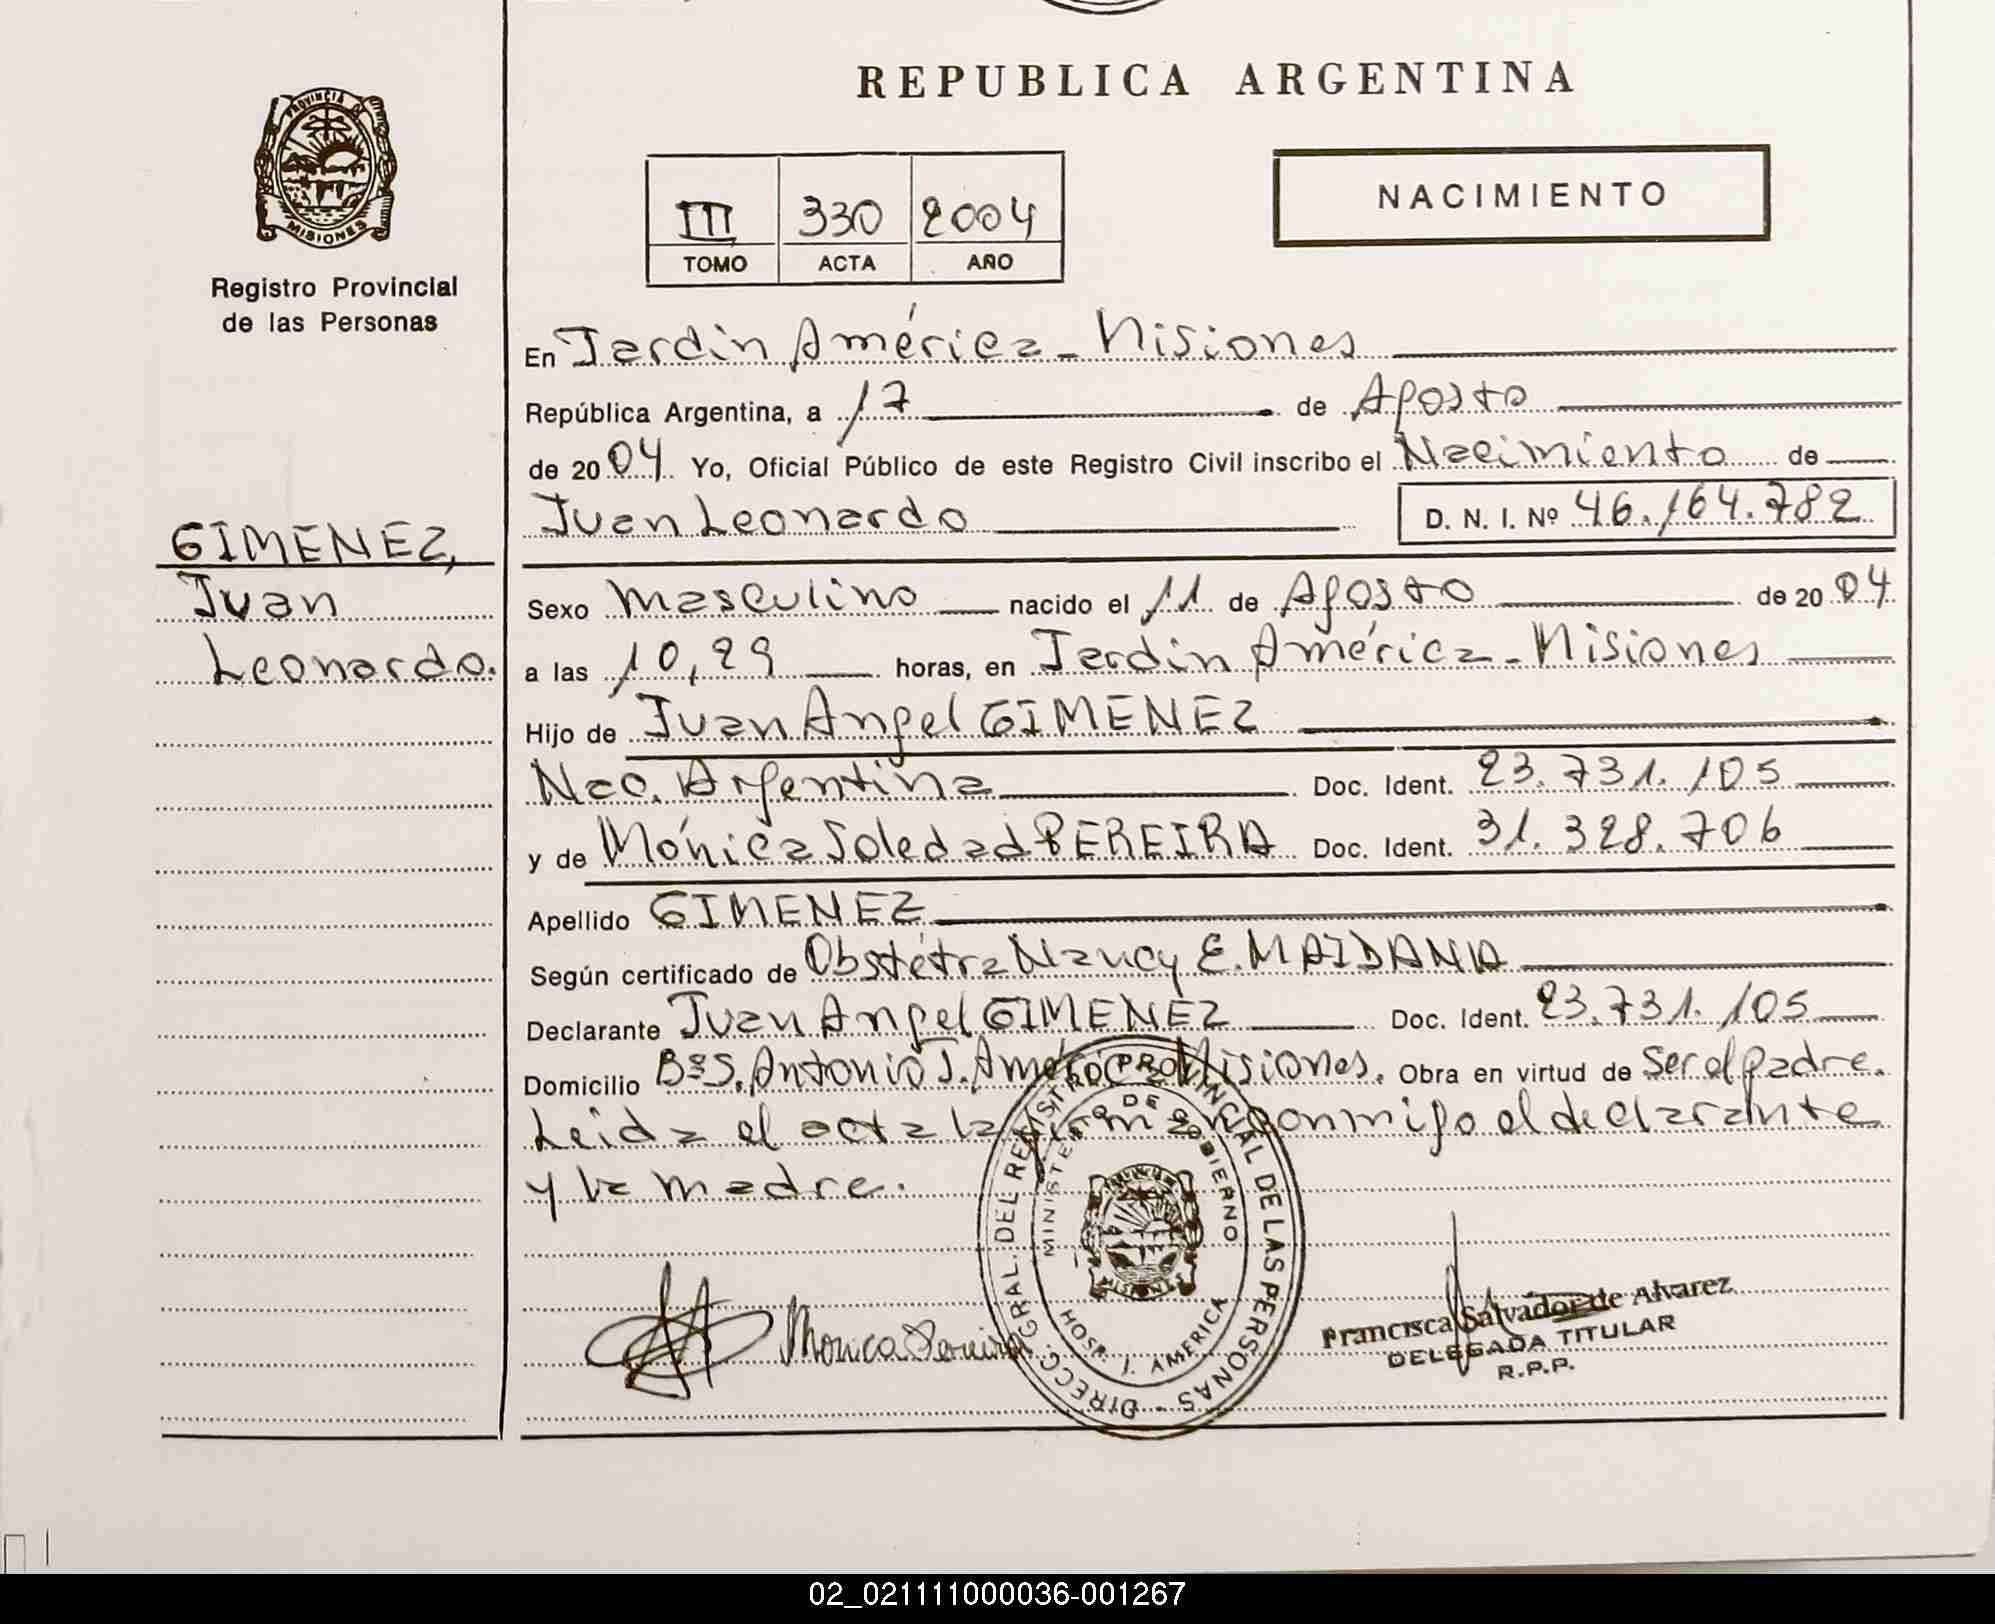 REPUBLICA ARGENTINA
PROVINCIA DE
MISIONES
Registro Provincial
de las Personas
III 330 2004
TOMO ACTA AÑO
NACIMIENTO
En Jardín América - Misiones
República Argentina, a 17 de Agosto
de 2004 Yo, Oficial Público de este Registro Civil inscribo el Nacimiento de
Juan Leonardo D. N. I. Nº 46.164.782
GIMENEZ,
Juan
Leonardo.
Sexo masculino nacido el 11 de Agosto de 2004
a las 10,29 horas, en Jardín América - Misiones
Hijo de Juan Angel GIMENEZ
Nac. Argentina Doc. Ident. 23.731.105
y de Mónica Soledad PEREIRA Doc. Ident. 31.328.706
Apellido GIMENEZ
Según certificado de Obstétra Nancy E. MAIDANA
Declarante Juan Angel GIMENEZ Doc. Ident. 23.731.105
Domicilio Bº S. Antonio J. América Misiones. Obra en virtud de Ser el padre.
Leida el acta la firman conmigo el declarante
y la madre.
DIRECC. GRAL. DEL REGISTRO PROVINCIAL DE LAS PERSONAS
MINISTERIO DE GOBIERNO
MISIONES
HOSP. J. AMERICA
Monica Pereira
Francisca Salvador de Alvarez
DELEGADA TITULAR
R.P.P.
02_021111000036-001267